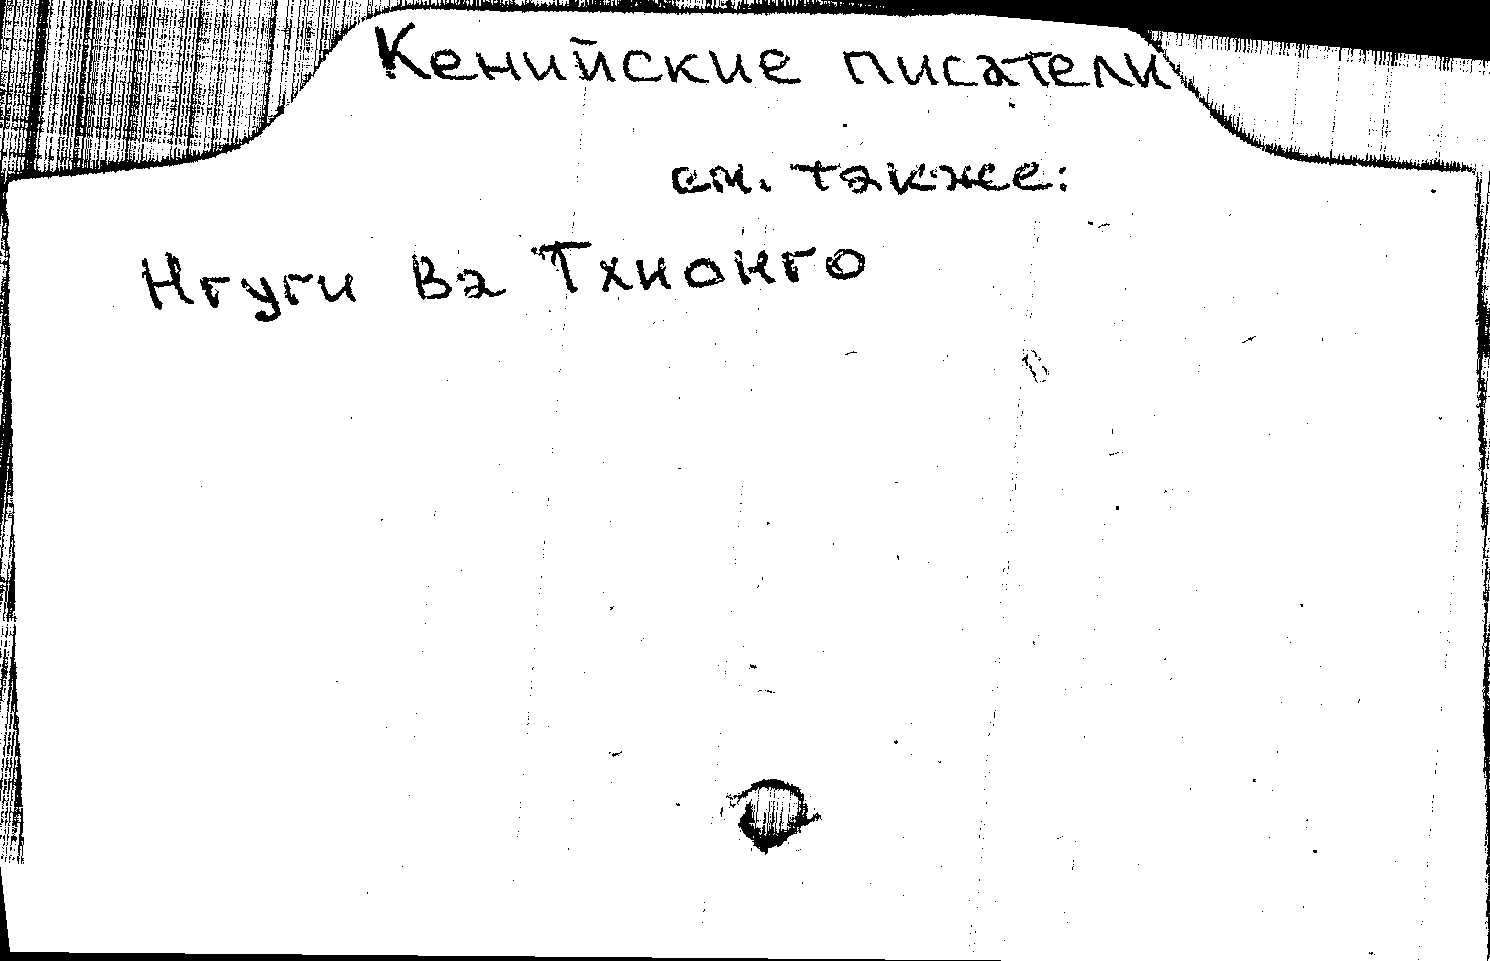 Кенийские писатели
см. также:
Нгуги Ва Тхионго